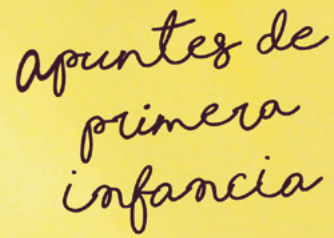 apuntes de
primera
infancia